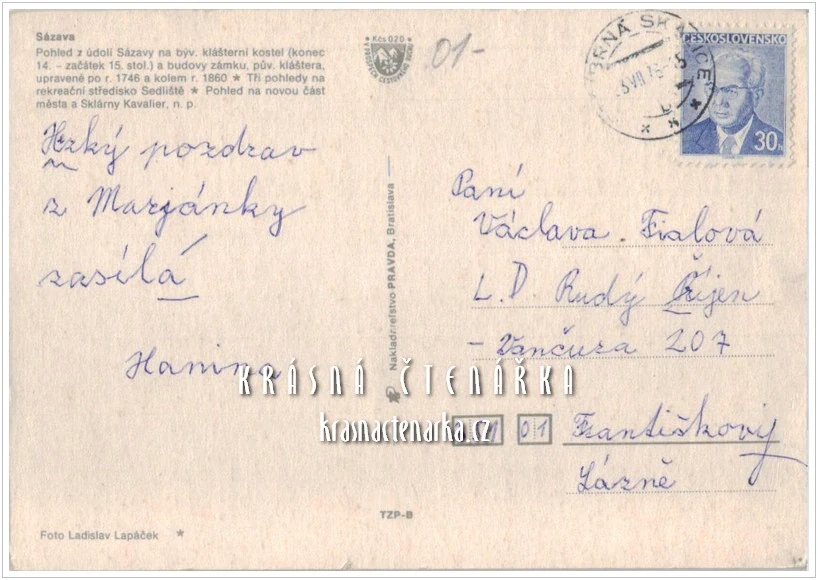 Sázava
Pohled z údolí Sázavy na býv. klášterní kostel (konec
14. – začátek 15. stol.) a budovy zámku, pův. kláštera,
upravené po r. 1746 a kolem r. 1860 * Tři pohledy na
rekreační středisko Sedliště * Pohled na novou část
města a Sklárny Kavalier, n. p.
Kčs 0,20
01-
ČESKOSLOVENSKO
30
Hezký pozdrav
z Marjánky
zasílá
Hanina
Nakladateľstvo PRAVDA, Bratislava
Paní
Václava Fialová
L. D. Rudý Říjen
- Vančura 207
01 Františkovy
Lázně
KRÁSNÁ ČTENÁŘKA
krasnactenarka.cz
TZP-B
Foto Ladislav Lapáček *